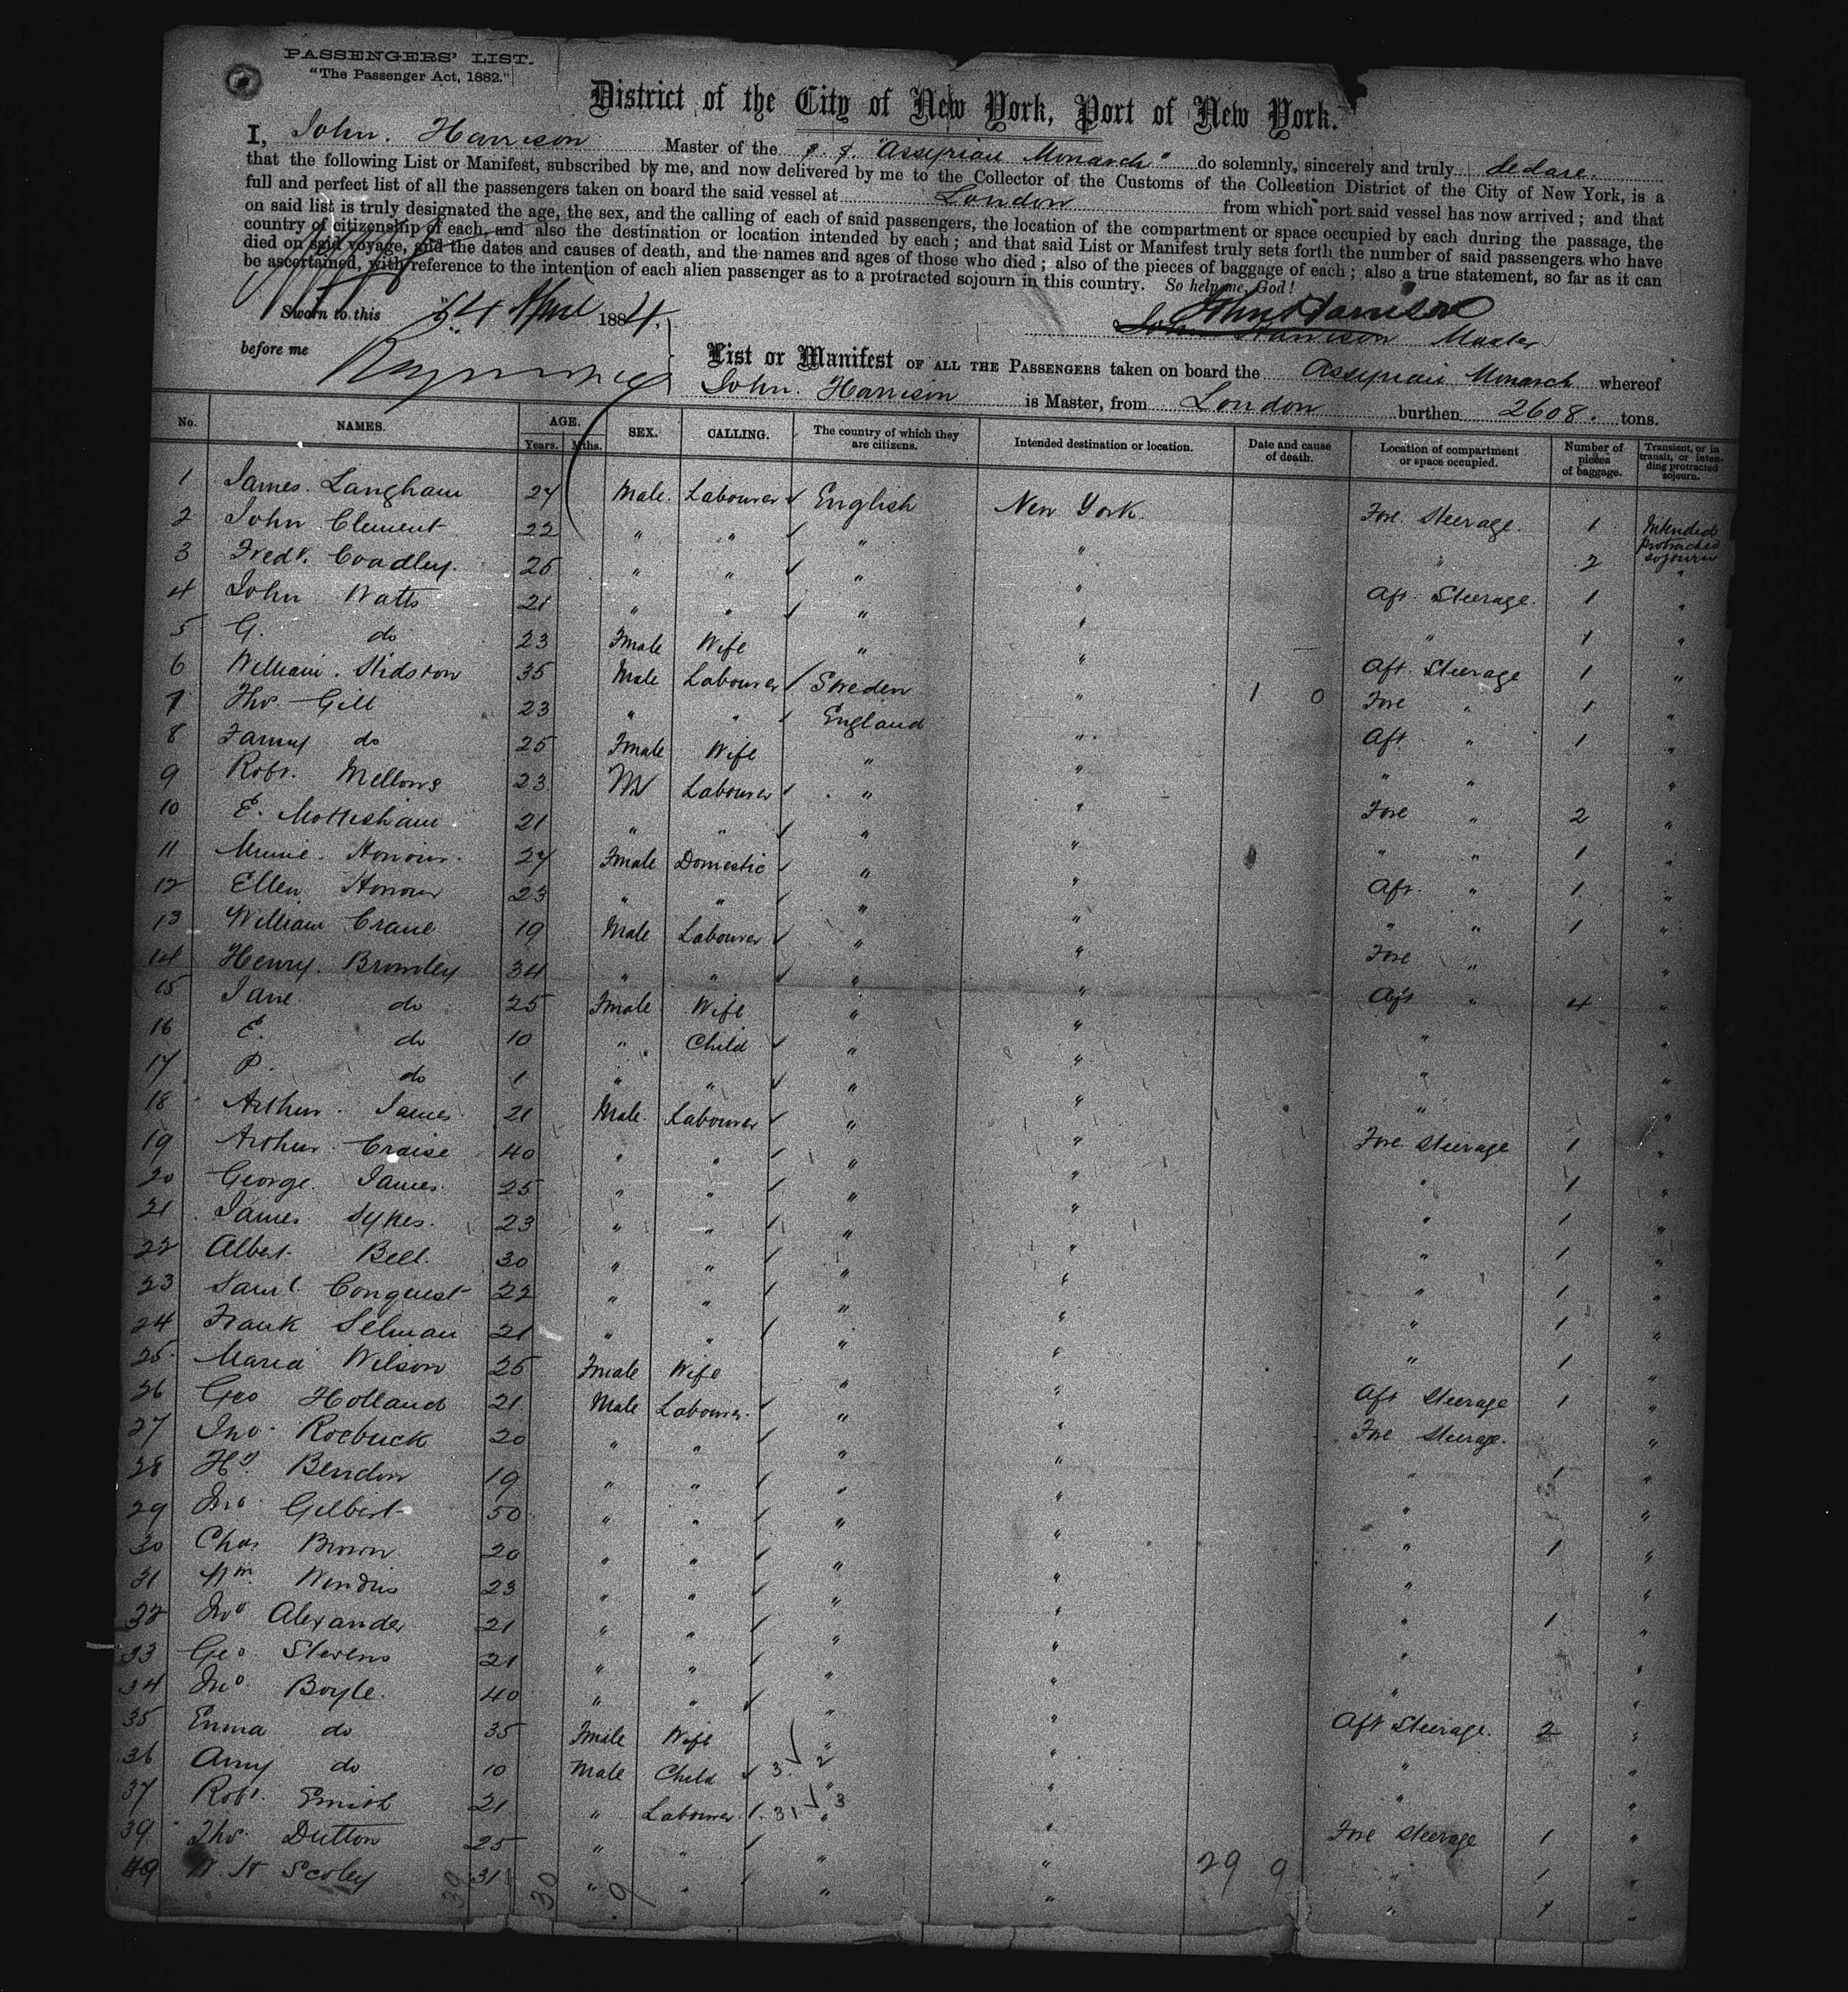 PASSENGERS' LIST.
"The Passenger Act, 1882."
District of the City of New York, Port of New York.
I, John. Harrison Master of the S. S. "Assyrian Monarch" do solemnly, sincerely and truly declare.
that the following List or Manifest, subscribed by me, and now delivered by me to the Collector of the Customs of the Collection District of the City of New York, is a
full and perfect list of all the passengers taken on board the said vessel at London from which port said vessel has now arrived; and that
on said list is truly designated the age, the sex, and the calling of each of said passengers, the location of the compartment or space occupied by each during the passage, the
country of citizenship of each, and also the destination or location intended by each; and that said List or Manifest truly sets forth the number of said passengers who have
died on said voyage, and the dates and causes of death, and the names and ages of those who died; also of the pieces of baggage of each; also a true statement, so far as it can
be ascertained, with reference to the intention of each alien passenger as to a protracted sojourn in this country. So help me, God!
Sworn to this April 1884. John Harrison
before me John Harrison Master
List or Manifest OF ALL THE PASSENGERS taken on board the Assyrian Monarch whereof
John. Harrison is Master, from London burthen 2608. tons.
No. NAMES. AGE. Years. Mths. SEX. CALLING. The country of which they are citizens. Intended destination or location. Date and cause of death. Location of compartment or space occupied. Number of pieces of baggage. Transient, or in transit, or intending protracted sojourn.
1 James. Langham 27 Male. Labourer English New York. Fore. Steerage. 1 Intended protracted sojourn
2 John Clement 22 " " " " " 2 "
3 Fredk. Coadley. 26 " " " " Aft. Steerage. 1 "
4 John Watts 21 " " " " " 1 "
5 G. do 23 Fmale Wife " " Aft. Steerage 1 "
6 William. Stidston 35 Male Labourer Sweden " 1 0 Fore " 1 "
7 Thos. Gill 23 " " England " Aft. " 1 "
8 Fanny do 25 Fmale Wife " " " " "
9 Robt. Mellows 23 M Labourer " " Fore " 2 "
10 E. Mottisham 21 " " " " " " 1 "
11 Minnie. Honour. 27 Fmale Domestic " " Aft. " 1 "
12 Ellen Honour 23 " " " " " " 1 "
13 William Crane 19 Male Labourer " " Fore " "
14 Henry. Bromley 34 " " " " Aft " 4 "
15 Jane do 25 Fmale Wife " " " "
16 E. do 10 " Child " " " "
17 P. do 1 " " " " " "
18 Arthur. James 21 Male. Labourer " " Fore Steerage 1 "
19 Arthur Craise 40 " " " " " 1 "
20 George. James. 25 " " " " " 1 "
21 James Sykes. 23 " " " " " 1 "
22 Albert Bell. 30 " " " " " 1 "
23 Saml. Conquest 22 " " " " " 1 "
24 Frank Selman 21 " " " " " 1 "
25 Maria Wilson 25 Fmale Wife " " Aft Steerage 1 "
26 Geo Holland 21. Male Labourer. " " Fore Steerage. "
27 Jno. Roebuck 20 " " " " " 1 "
28 Hy Bendon 19 " " " " " "
29 Jno. Gilbert 50 " " " " " 1 "
30 Chas Brown 20 " " " " " "
31 Wm. 23 " " " " " 1 "
32 Jno Alexander 21 " " " " " "
33 Geo. Stevens 21 " " " " " "
34 Jno. Boyle. 40 " " " " Aft Steerage. 2 "
35 Emma do 35 Fmale Wife " " " "
36 Amy do 10 Male Child 3. 2 " " " "
37 Robt. Smith 21 " Labourer. 31 3 " " Fore Steerage 1 "
39 Thos. Dutton 25 " " " " 29 9 " 1 "
40 W. H Scoley 31 " " " " " 1 "
30 30 9